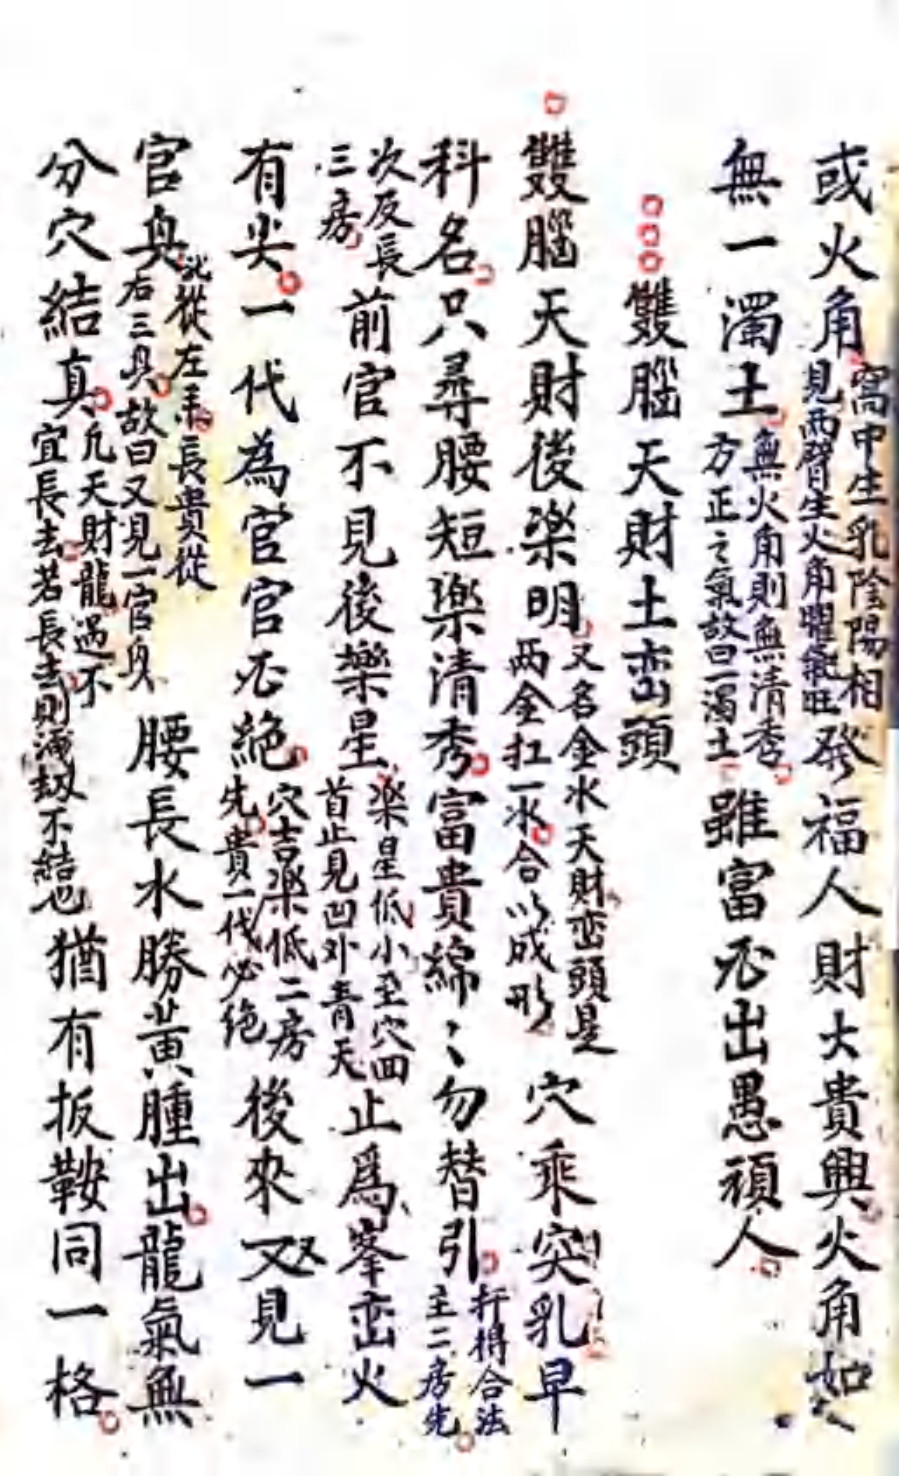 或火角窩中生乳陰陽相見兩臂生火角曜氣旺發福人財大貴興火角如
無一濁土無火角則無清秀方正之氣故曰濁土雖富不出愚頑人
雙腦天財土峦頭
雙腦天財後楽明又名金水天財峦頭是兩金扛一水合以成形穴乘突乳早
科名只尋腰短樂清秀富貴綿〻勿替引扦得合法主二房先
次反長三房前官不見後樂星楽星低小至穴回首止見凹外青天止爲峯峦火
有尖一代為官官不絕穴吉楽低二房先貴一代必絶後來又見一
官鬼從左來長貴從右三鬼故曰又見一官鬼腰長水勝黃腫出龍氣無
分穴結真凡天財龍過不宜長去若長去則不結也猶有扳鞍同一格